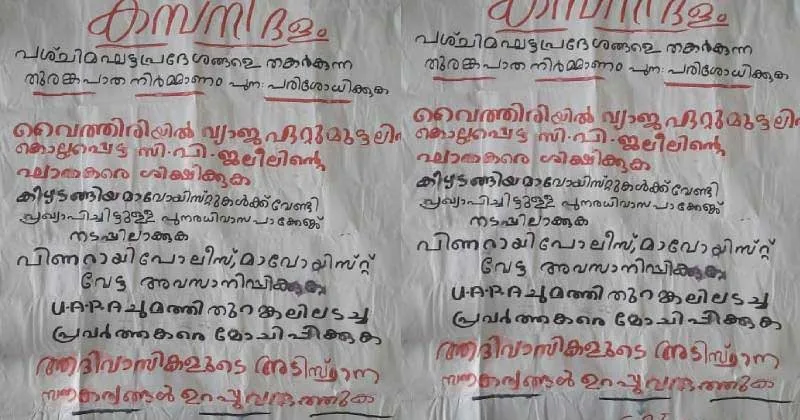 കമ്പനി ദളം
പശ്ചിമഘട്ടപ്രദേശങ്ങളെ തകർക്കുന്ന
തുരങ്കപാത നിർമ്മാണം പുന: പരിശോധിക്കുക
വൈത്തിരിയിൽ വ്യാജ ഏറ്റുമുട്ടലിൽ
കൊല്ലപ്പെട്ട സി.പി.ജലീലിന്റെ
ഘാതകരെ ശിക്ഷിക്കുക
കീഴടങ്ങിയ മാവോയിസ്റ്റുകൾക്ക് വേണ്ടി
പ്രഖ്യാപിച്ചിട്ടുള്ള പുനരധിവാസ പാക്കേജ്
നടപ്പിലാക്കുക
പിണറായി പോലീസ്, മാവോയിസ്റ്റ്
വേട്ട അവസാനിപ്പിക്കുക
U.A.P.A ചുമത്തി തുറങ്കലിലടച്ച
പ്രവർത്തകരെ മോചിപ്പിക്കുക
ആദിവാസികളുടെ അടിസ്ഥാന
ഉറപ്പുവരുത്തുക
പശ്ചിമഘട്ടപ്രദേശങ്ങളെ തകർക്കുന്ന
തുരങ്കപാത നിർമ്മാണം പുന: പരിശോധിക്കുക
വൈത്തിരിയിൽ വ്യാജ ഏറ്റുമുട്ടലിൽ
കൊല്ലപ്പെട്ട സി.പി.ജലീലിന്റെ
ഘാതകരെ ശിക്ഷിക്കുക
കീഴടങ്ങിയ മാവോയിസ്റ്റുകൾക്ക് വേണ്ടി
പ്രഖ്യാപിച്ചിട്ടുള്ള പുനരധിവാസ പാക്കേജ്
നടപ്പിലാക്കുക
പിണറായി പോലീസ്, മാവോയിസ്റ്റ്
വേട്ട അവസാനിപ്പിക്കുക
U.A.P.A ചുമത്തി തുറങ്കലിലടച്ച
പ്രവർത്തകരെ മോചിപ്പിക്കുക
ആദിവാസികളുടെ അടിസ്ഥാന
ഉറപ്പുവരുത്തുക